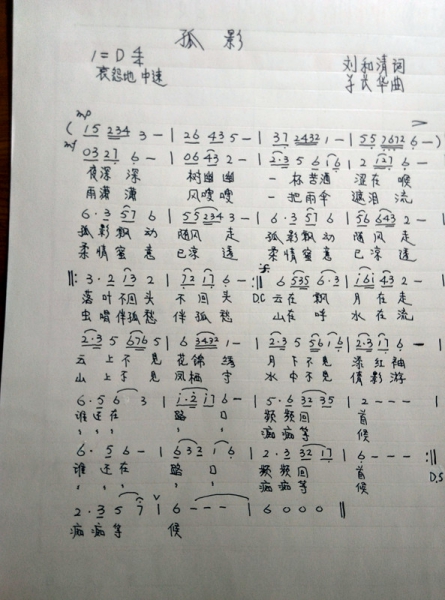 孤影
1=D 4/4
哀怨地 中速
刘和清词
李长华曲
mp
( 15 234 3 - | 26 43 5 - | 37 2432 1 - | 55 7672 6 - )
mf
03 27 6 - | 06 43 2 - | 2·3 5 6 1 6 | 2 1 27 6 - |
夜深深 树幽幽 一杯苦酒 湿在喉
雨潇潇 风嗖嗖 一把雨伞 遮泪流
6·3 57 6 | 55 234 3 - | 6·3 57 6 | 56 643 2 - |
孤影飘动 随风走 孤影飘动 随风走
柔情蜜意 已深透 柔情蜜意 已深透
‖: 3·2 13 2 | 72 17 6 - :‖ 6 535 6·3 | i6i 43 2 - |
落叶不回头 不回头 D.C 云在飘 月在走
虫唱伴孤愁 伴孤愁 山在呼 水在流
2·3 5 676 5 | 6 3432 1 - | 2·3 5 56 1 6 | 2·3 17 6 - |
云上不见 花锦绣 月下不见 添红袖
山上不见 凤栖守 水中不见 倩影游
6·5 6 3 | i·2 i7 6 - | 5·6 32 35 | 2 - - - |
谁还在 路口 频频回首
痴痴等候
6·5 6 - | 6 32 1 6 | 2·3 32 17 | 6 - - - :‖
谁还在 路口 频频回首 D.S
痴痴等候
2·3 5 7 i | 6 - - - | 6 0 0 0 ‖
痴痴等候